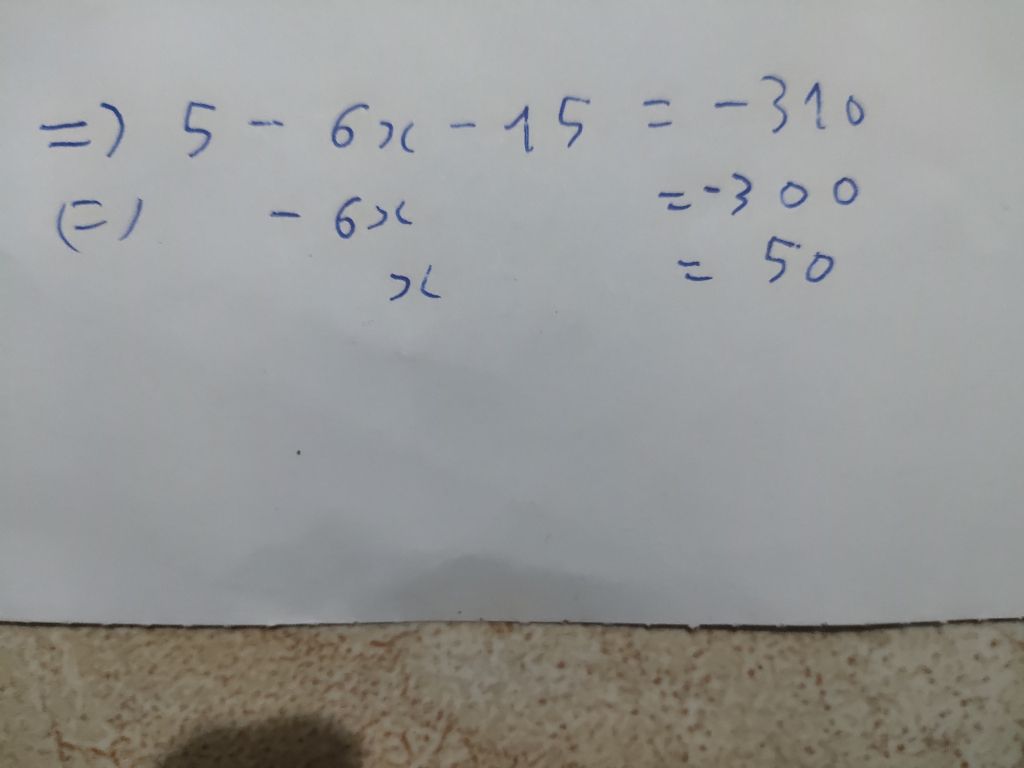 => 5 - 6x - 15 = -310
(=) - 6x = -300
x = 50